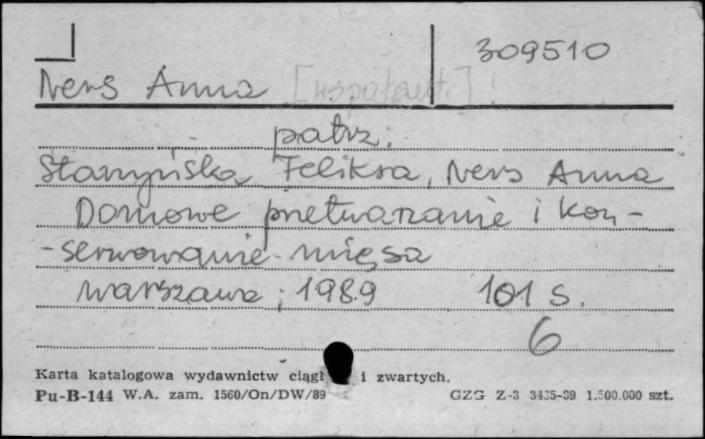 309510
Ners Anna [współaut.]
patrz:
Stanyńska Feliksa, Ners Anna
Domowe przetwarzanie i kon-
-serwowanie mięsa
Warszawa, 1989 101 s.
6
Karta katalogowa wydawnictw ciągł i zwartych.
Pu-B-144 W.A. zam. 1560/On/DW/89 GZG Z-3 3435-89 1.500.000 szt.